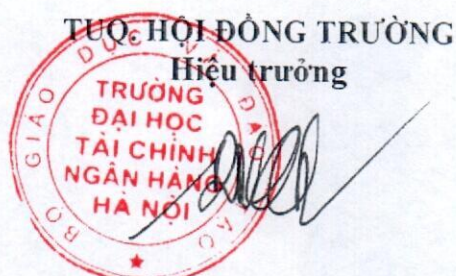 TUQ. HỘI ĐỒNG TRƯỜNG
Hiệu trưởng
BỘ GIÁO DỤC VÀ ĐÀO TẠO
TRƯỜNG
ĐẠI HỌC
TÀI CHÍNH
NGÂN HÀNG
HÀ NỘI